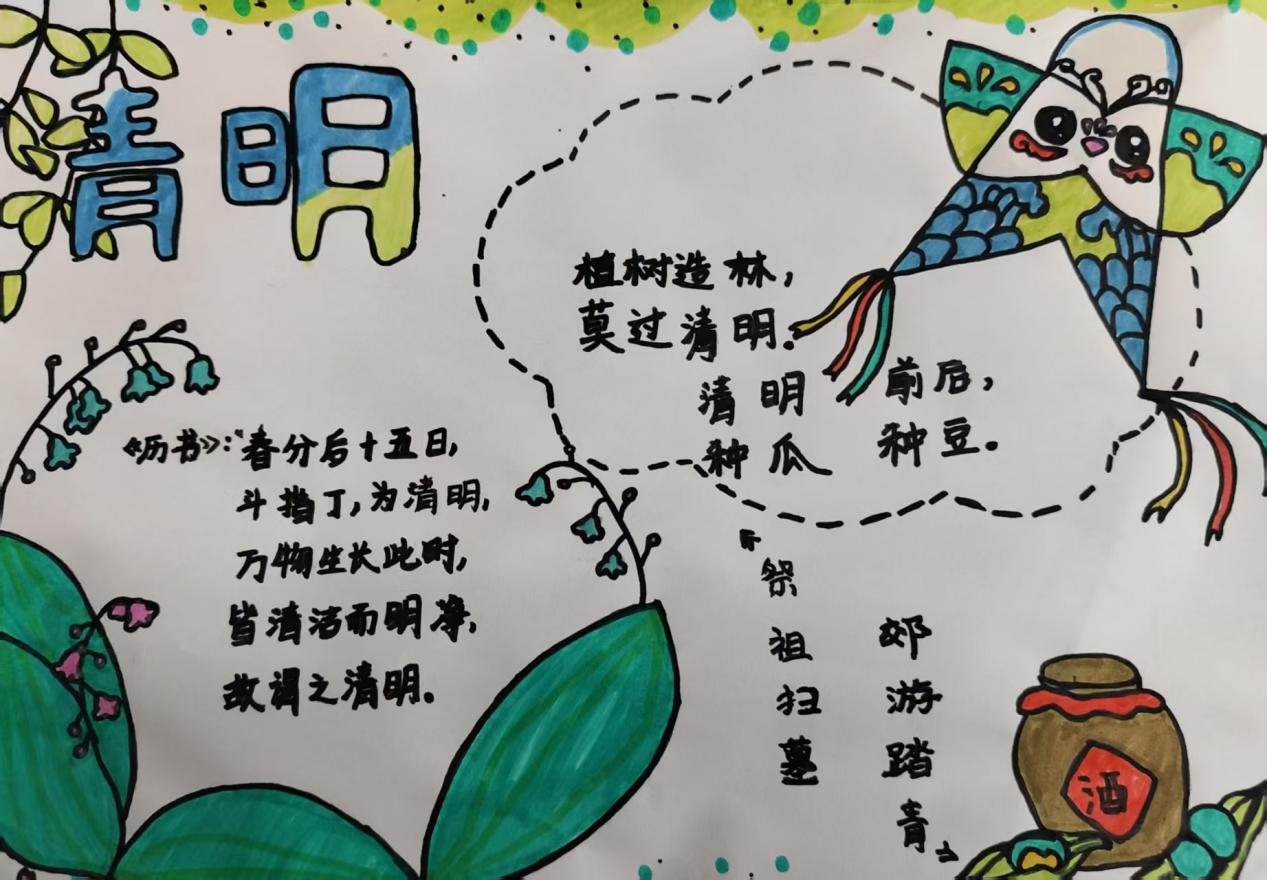 清明
植树造林，
莫过清明。
清明 前后，
种瓜 种豆。
《历书》：“春分后十五日，
斗指丁，为清明，
万物生长此时，
皆清洁而明净，
故谓之清明。
『祭祖扫墓
郊游踏青』
酒